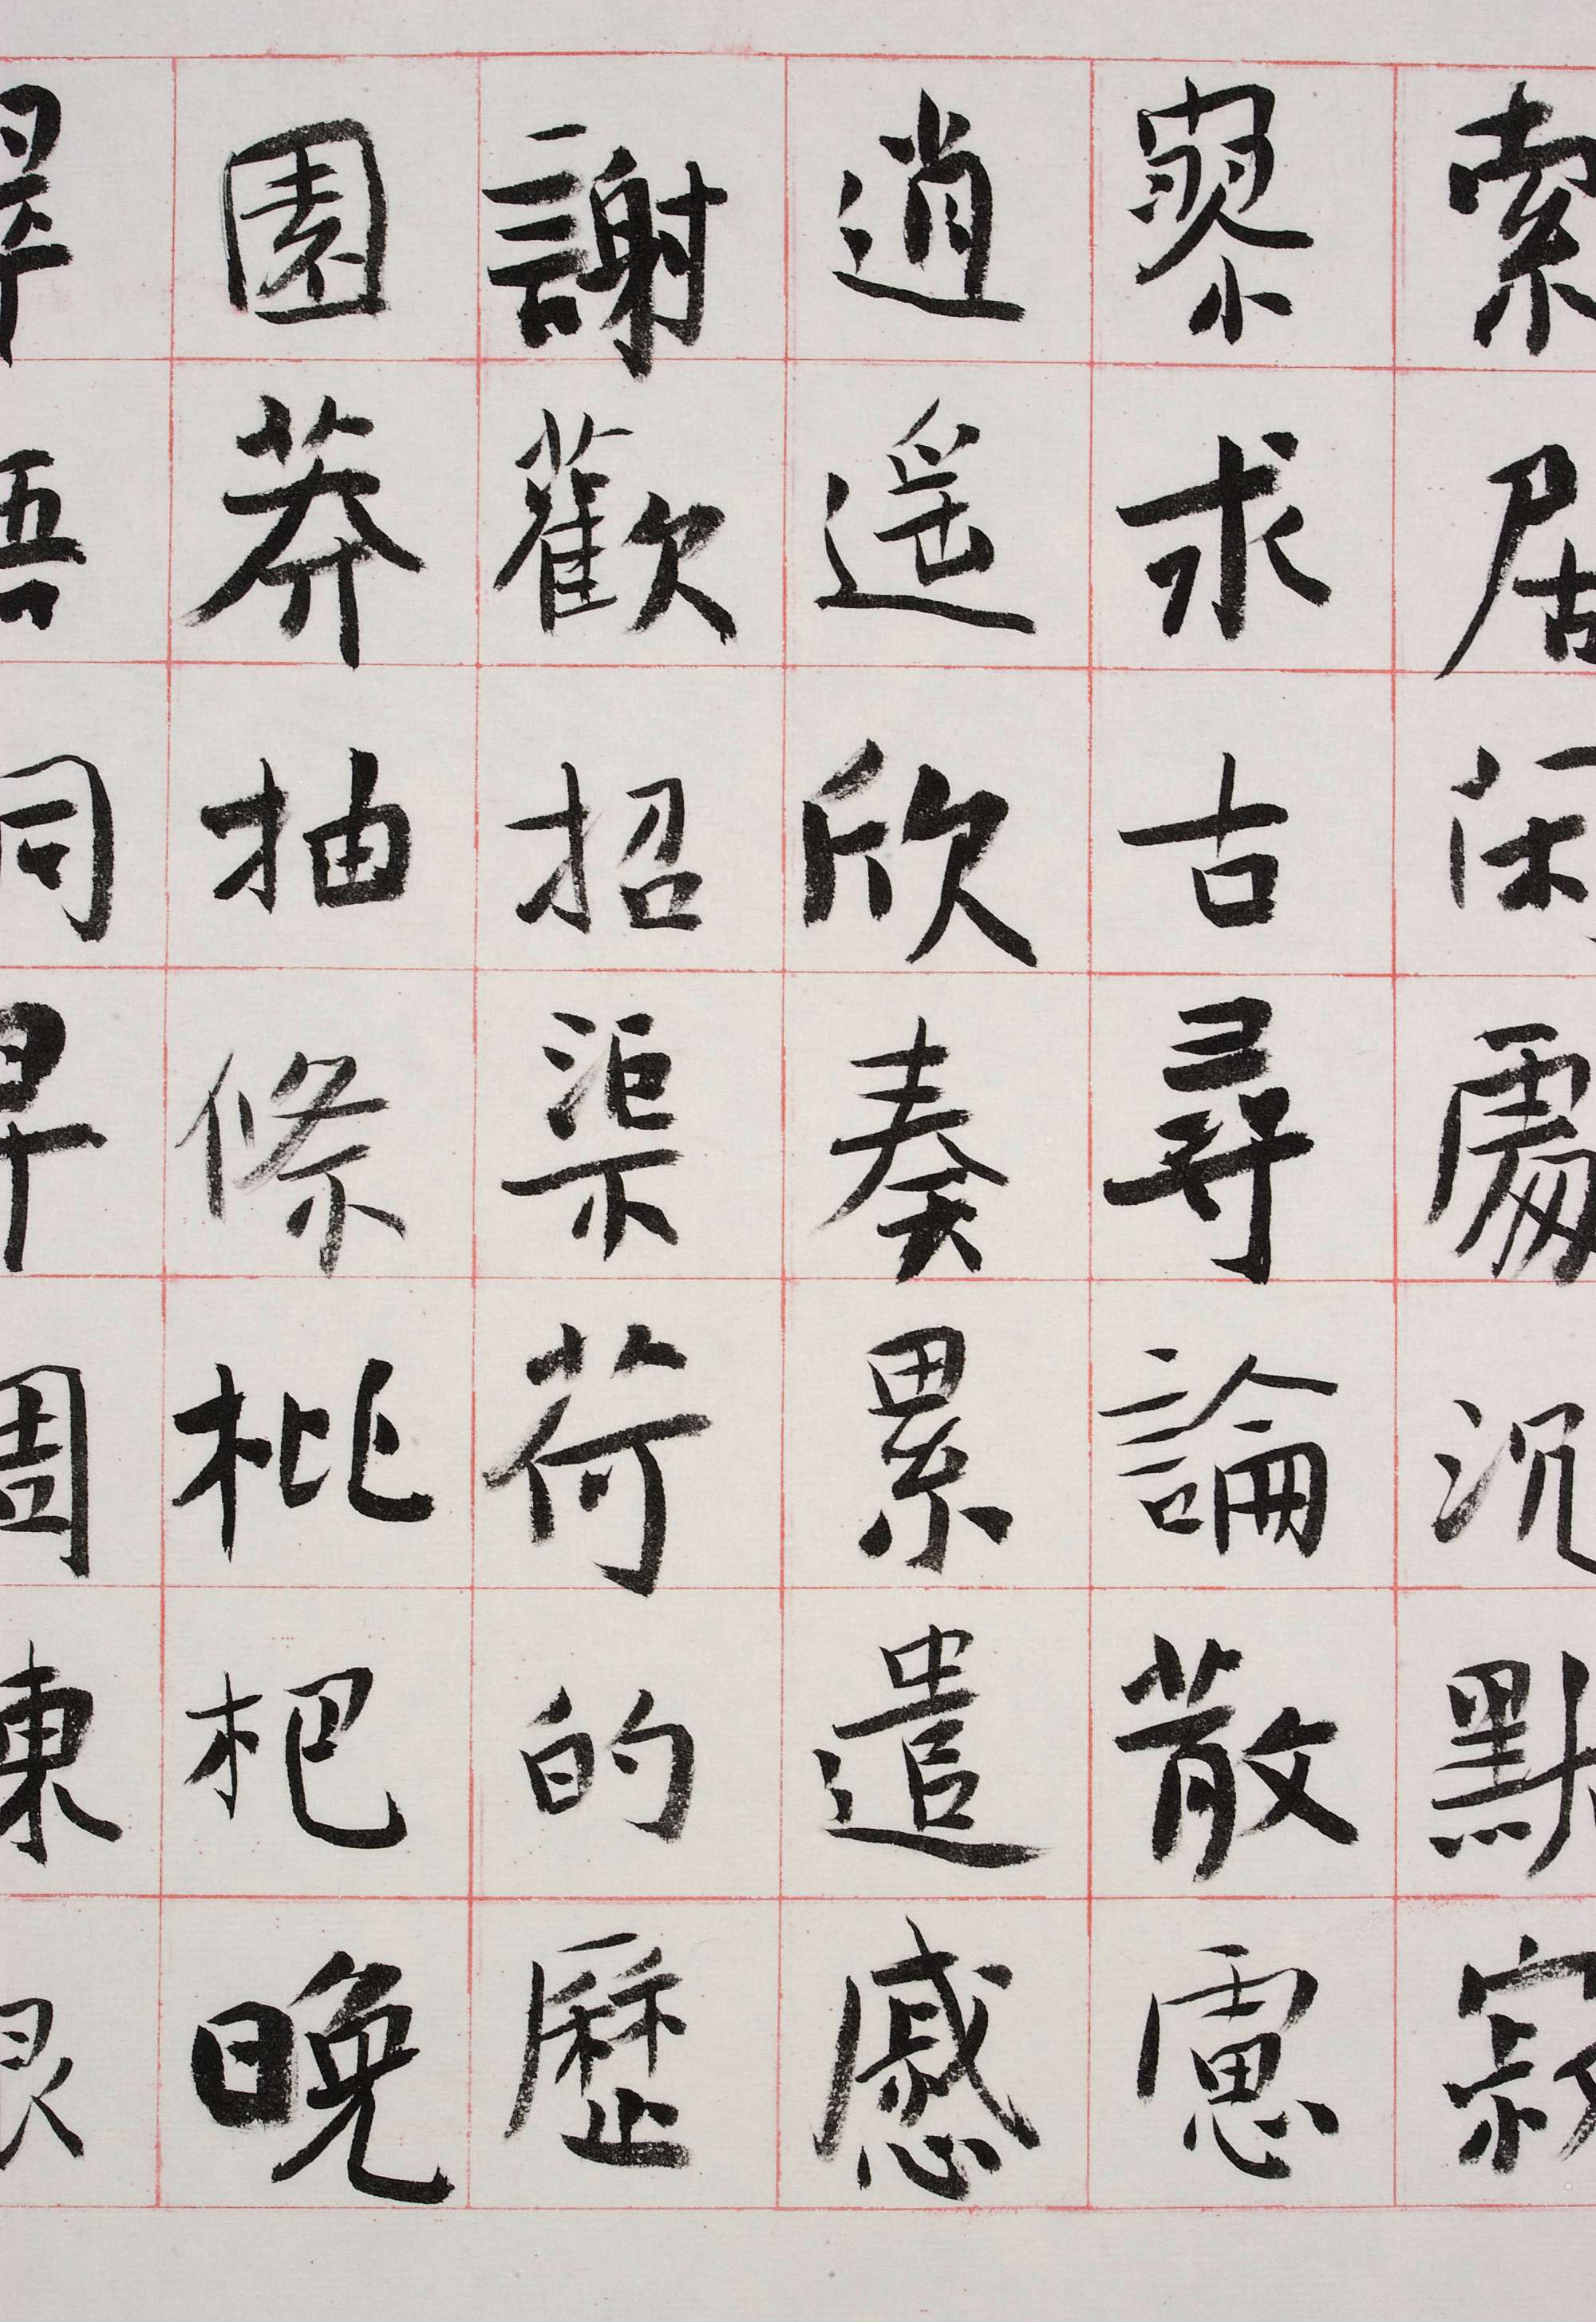 索居閑處沉默寂
寥求古尋論散慮
逍遥欣奏累遣慼
謝歡招渠荷的歷
園莽抽條枇杷晚
翠梧桐早凋陳根